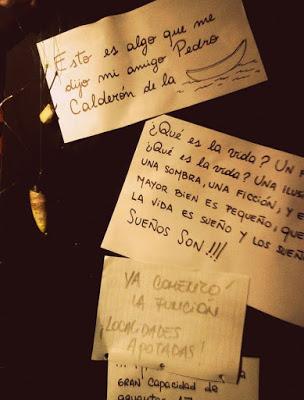 Esto es algo que me
dijo mi amigo Pedro
Calderón de la
¿Qué es la vida? UN
¿Qué es la vida? UNA
UNA SOMBRA, UNA FICCIÓN, Y
MAYOR BIEN ES PEQUEÑO, QUE
LA VIDA ES SUEÑO Y LOS
SUEÑOS SON!!!
YA COMENZÓ
LA FUNCIÓN
¡LOCALIDADES
AGOTADAS!
GRAN CAPACIDAD DE